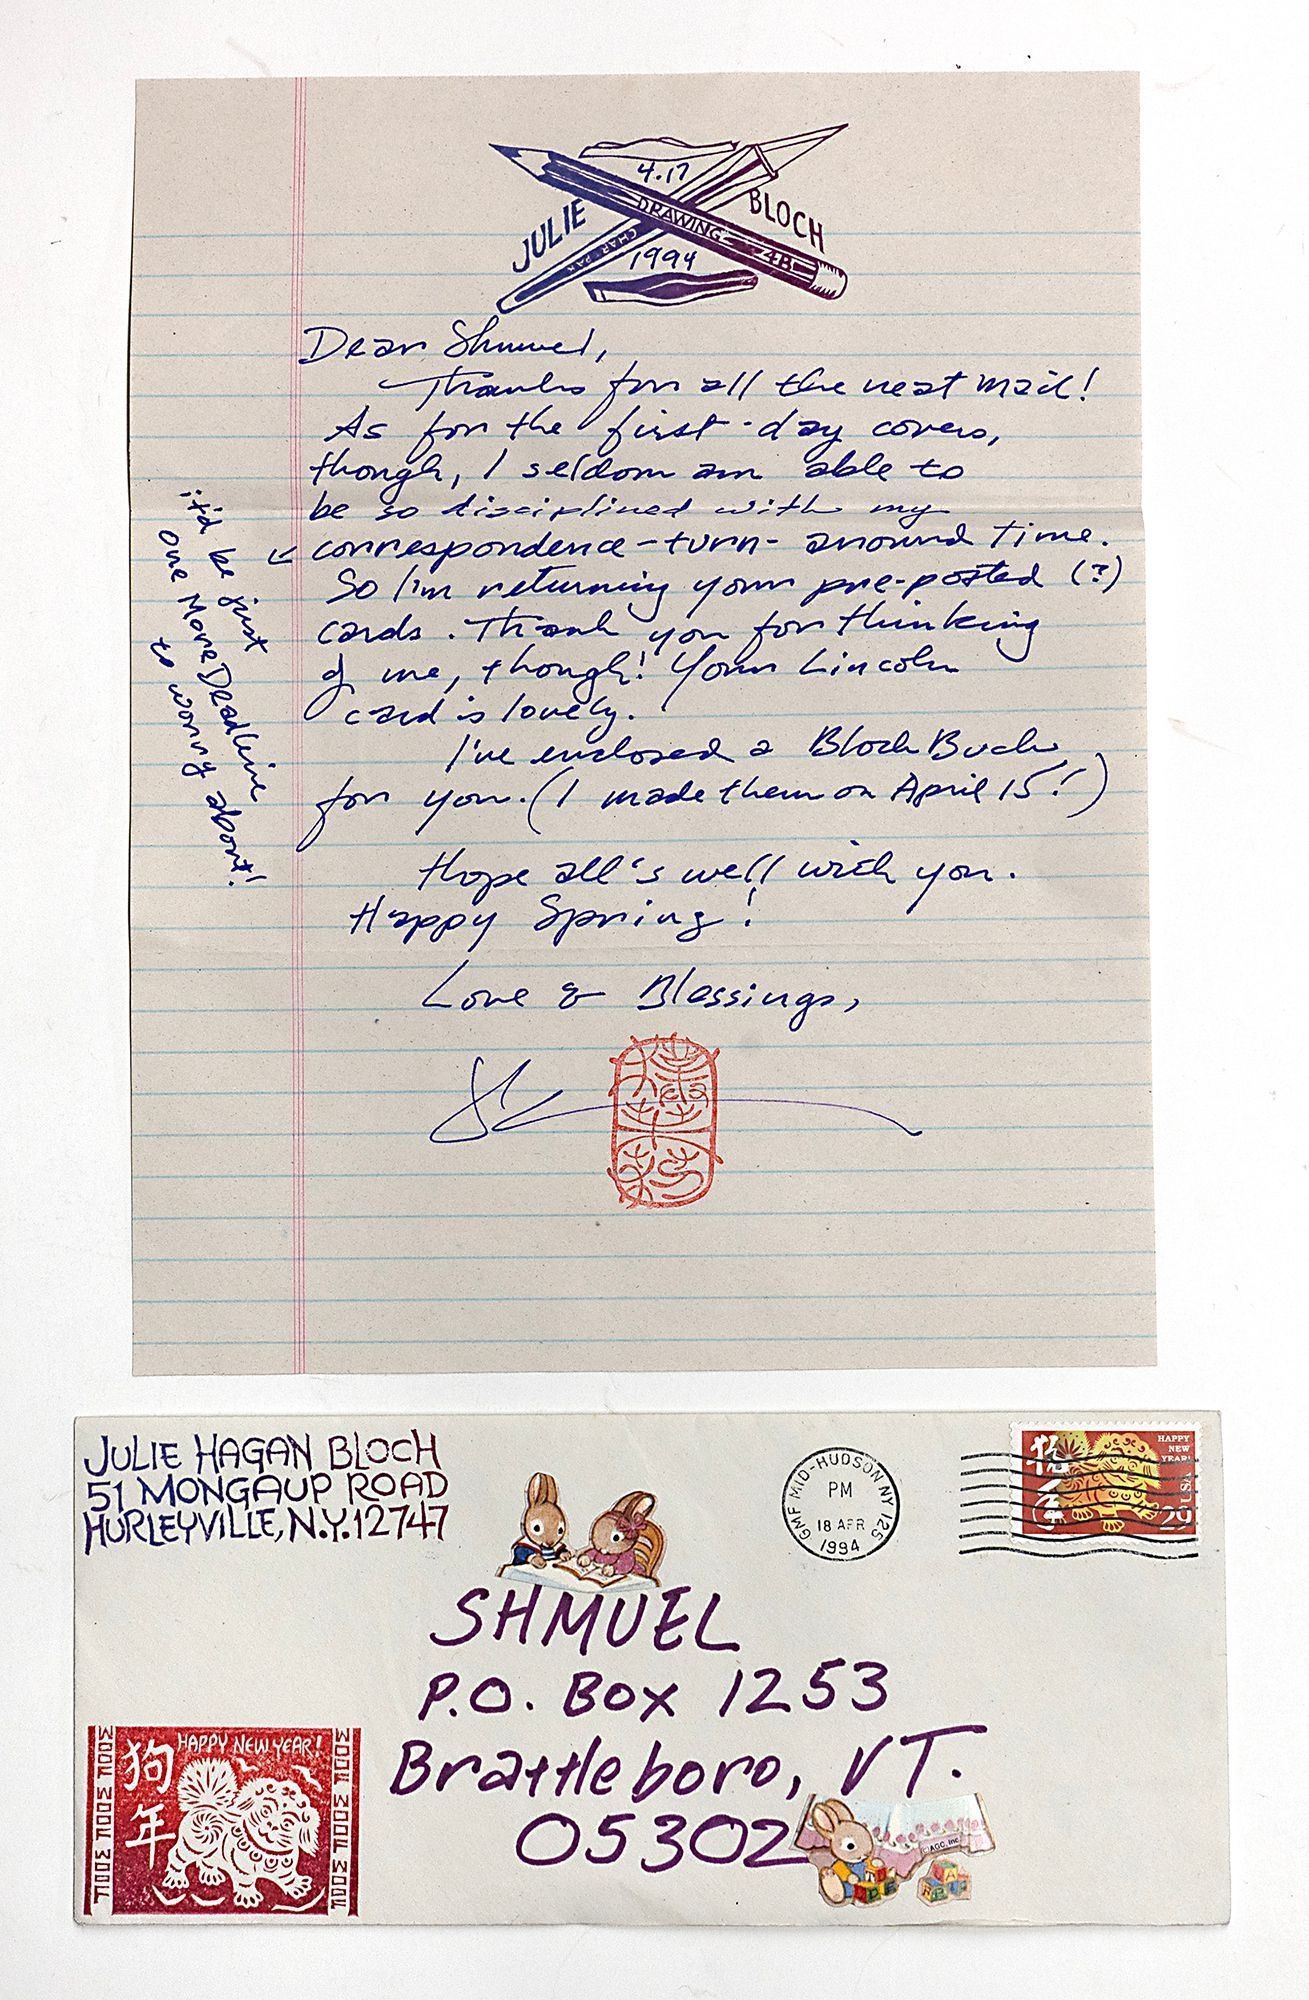 4.17
JULIE BLOCH
DRAWING 4B
1994
Dear Shmuel,
Thanks for all the neat mail!
As for the first-day covers,
though, I seldom am able to
be so disciplined with my
correspondence-turn-around time.
So I'm returning your pre-posted (?)
cards. Thank you for thinking
of me, though! Your Lincoln
card is lovely.
I've enclosed a Bloch Buck
for you. (I made them on April 15!)
Hope all's well with you.
Happy Spring!
Love & Blessings,
it'd be just
one More Deadline
to worry about!
JULIE HAGAN BLOCH
51 MONGAUP ROAD
HURLEYVILLE, N.Y. 12747
GMF MID-HUDSON NY 125
PM
18 APR
1994
HAPPY
NEW
YEAR!
USA
29
SHMUEL
P.O. Box 1253
Brattleboro, VT.
05302
HAPPY NEW YEAR!
狗
年
WOOF WOOF WOOF
WOOF WOOF WOOF
©AGC, Inc.